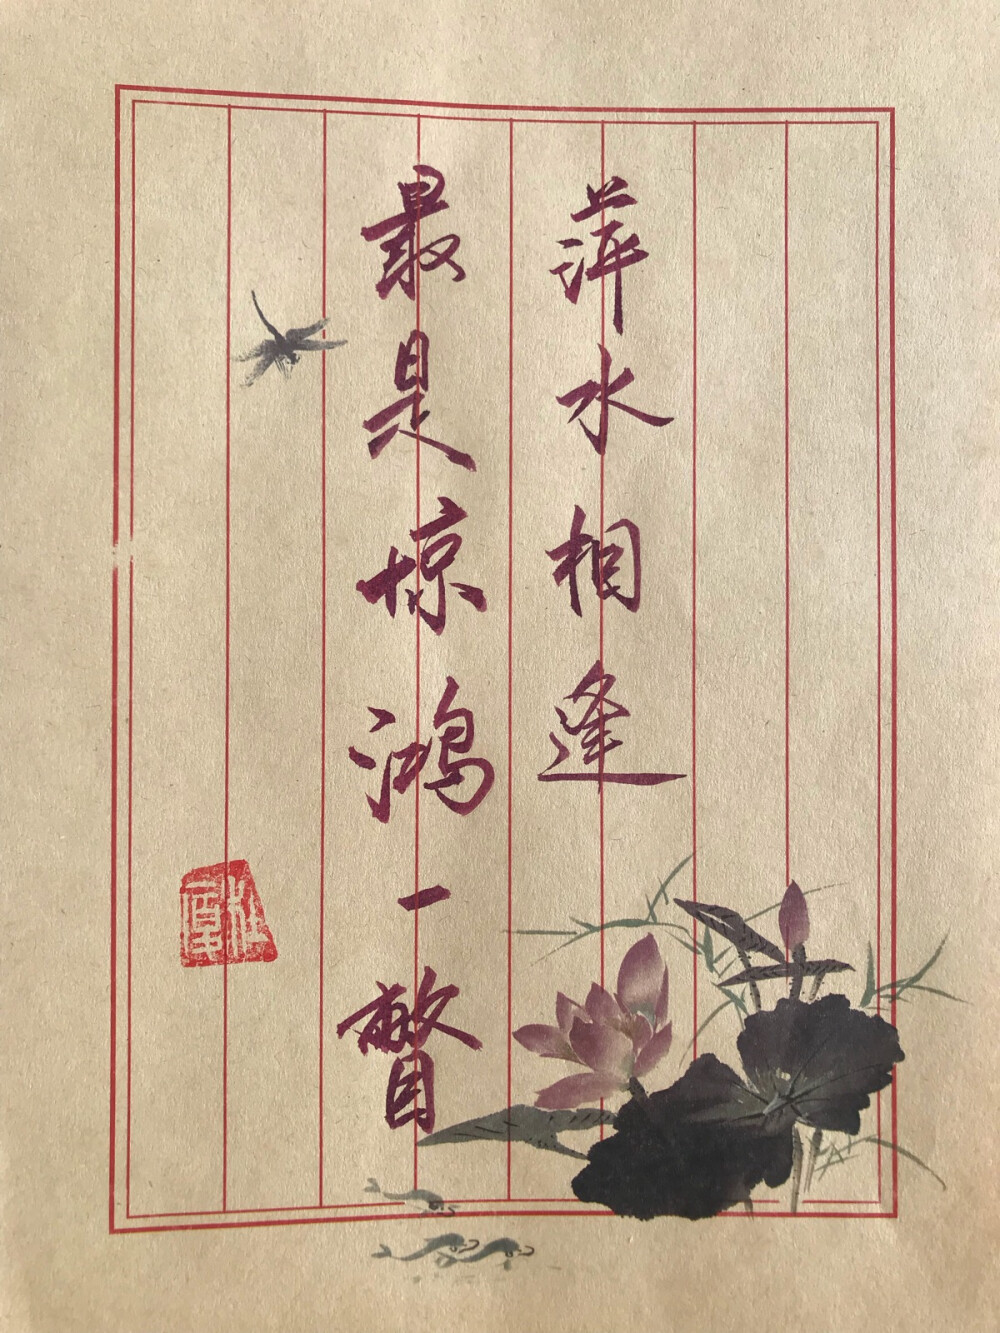 萍水相逢
最是惊鸿一瞥